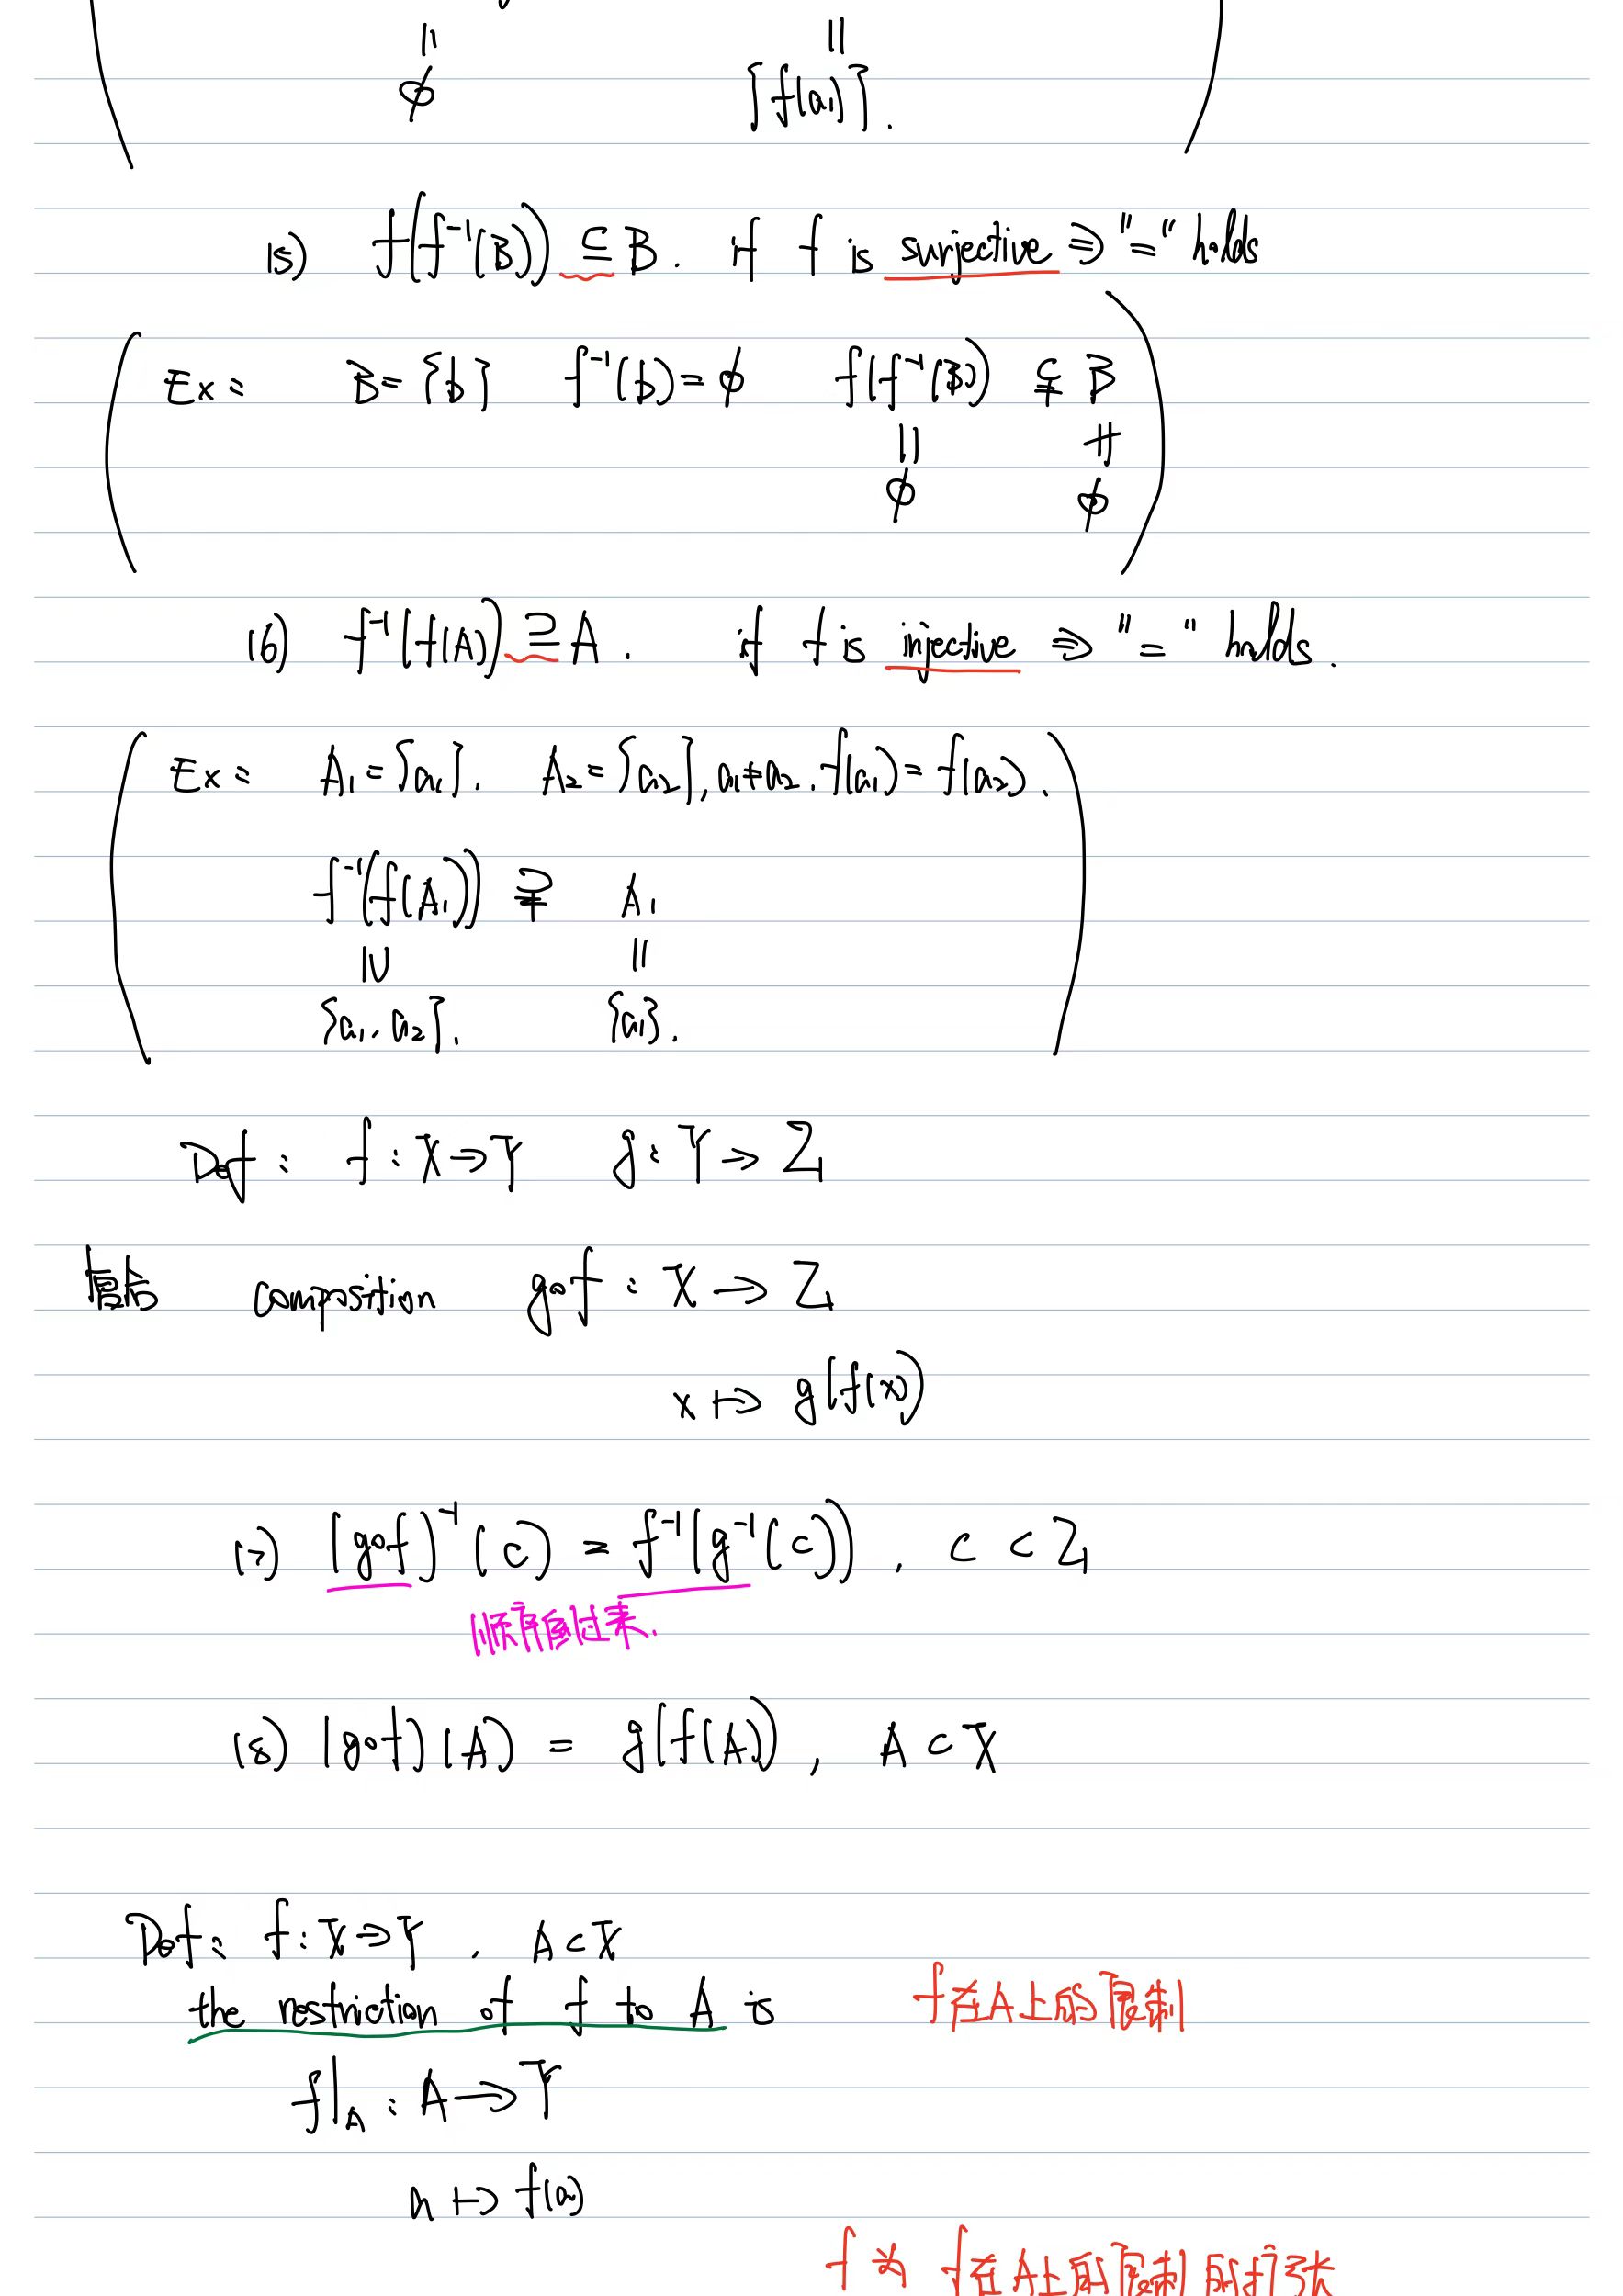 = =
∅ {f(a₁)}.
(5) f(f⁻¹(B)) ⊆ B. if f is surjective ⇒ "=" holds
Ex: B={b} f⁻¹(b)=∅ f(f⁻¹(B)) ⊊ B
= ≠
∅ ∅
(6) f⁻¹(f(A)) ⊇ A. if f is injective ⇒ "=" holds.
Ex: A₁={a₁}. A₂={a₂}, a₁≠a₂. f(a₁)=f(a₂).
f⁻¹(f(A₁)) ⊋ A₁
⊇ =
{a₁, a₂}. {a₁}.
Def: f: X→Y g: Y→Z
复合 composition g∘f: X→Z
x ↦ g(f(x))
(7) (g∘f)⁻¹(C) = f⁻¹(g⁻¹(C)), C⊂Z
顺序倒过来.
(8) (g∘f)(A) = g(f(A)), A⊂X
Def: f: X→Y, A⊂X
the restriction of f to A is f在A上的限制
f|_A: A→Y
a ↦ f(a)
f为 f在A上的限制的扩张